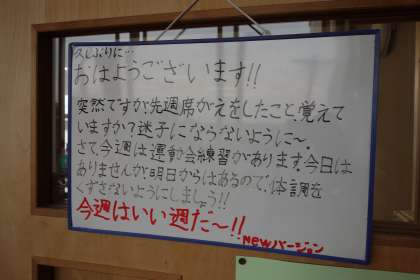 久しぶりに…
おはようございます!!
突然ですが、先週席がえをしたこと、覚えて
いますか?迷子にならないように〜。
さて、今週は運動会練習があります。今日は
ありませんが、明日からはあるので、体調を
くずさないようにしましょう!!
今週はいい週だ〜!!
Newバージョン